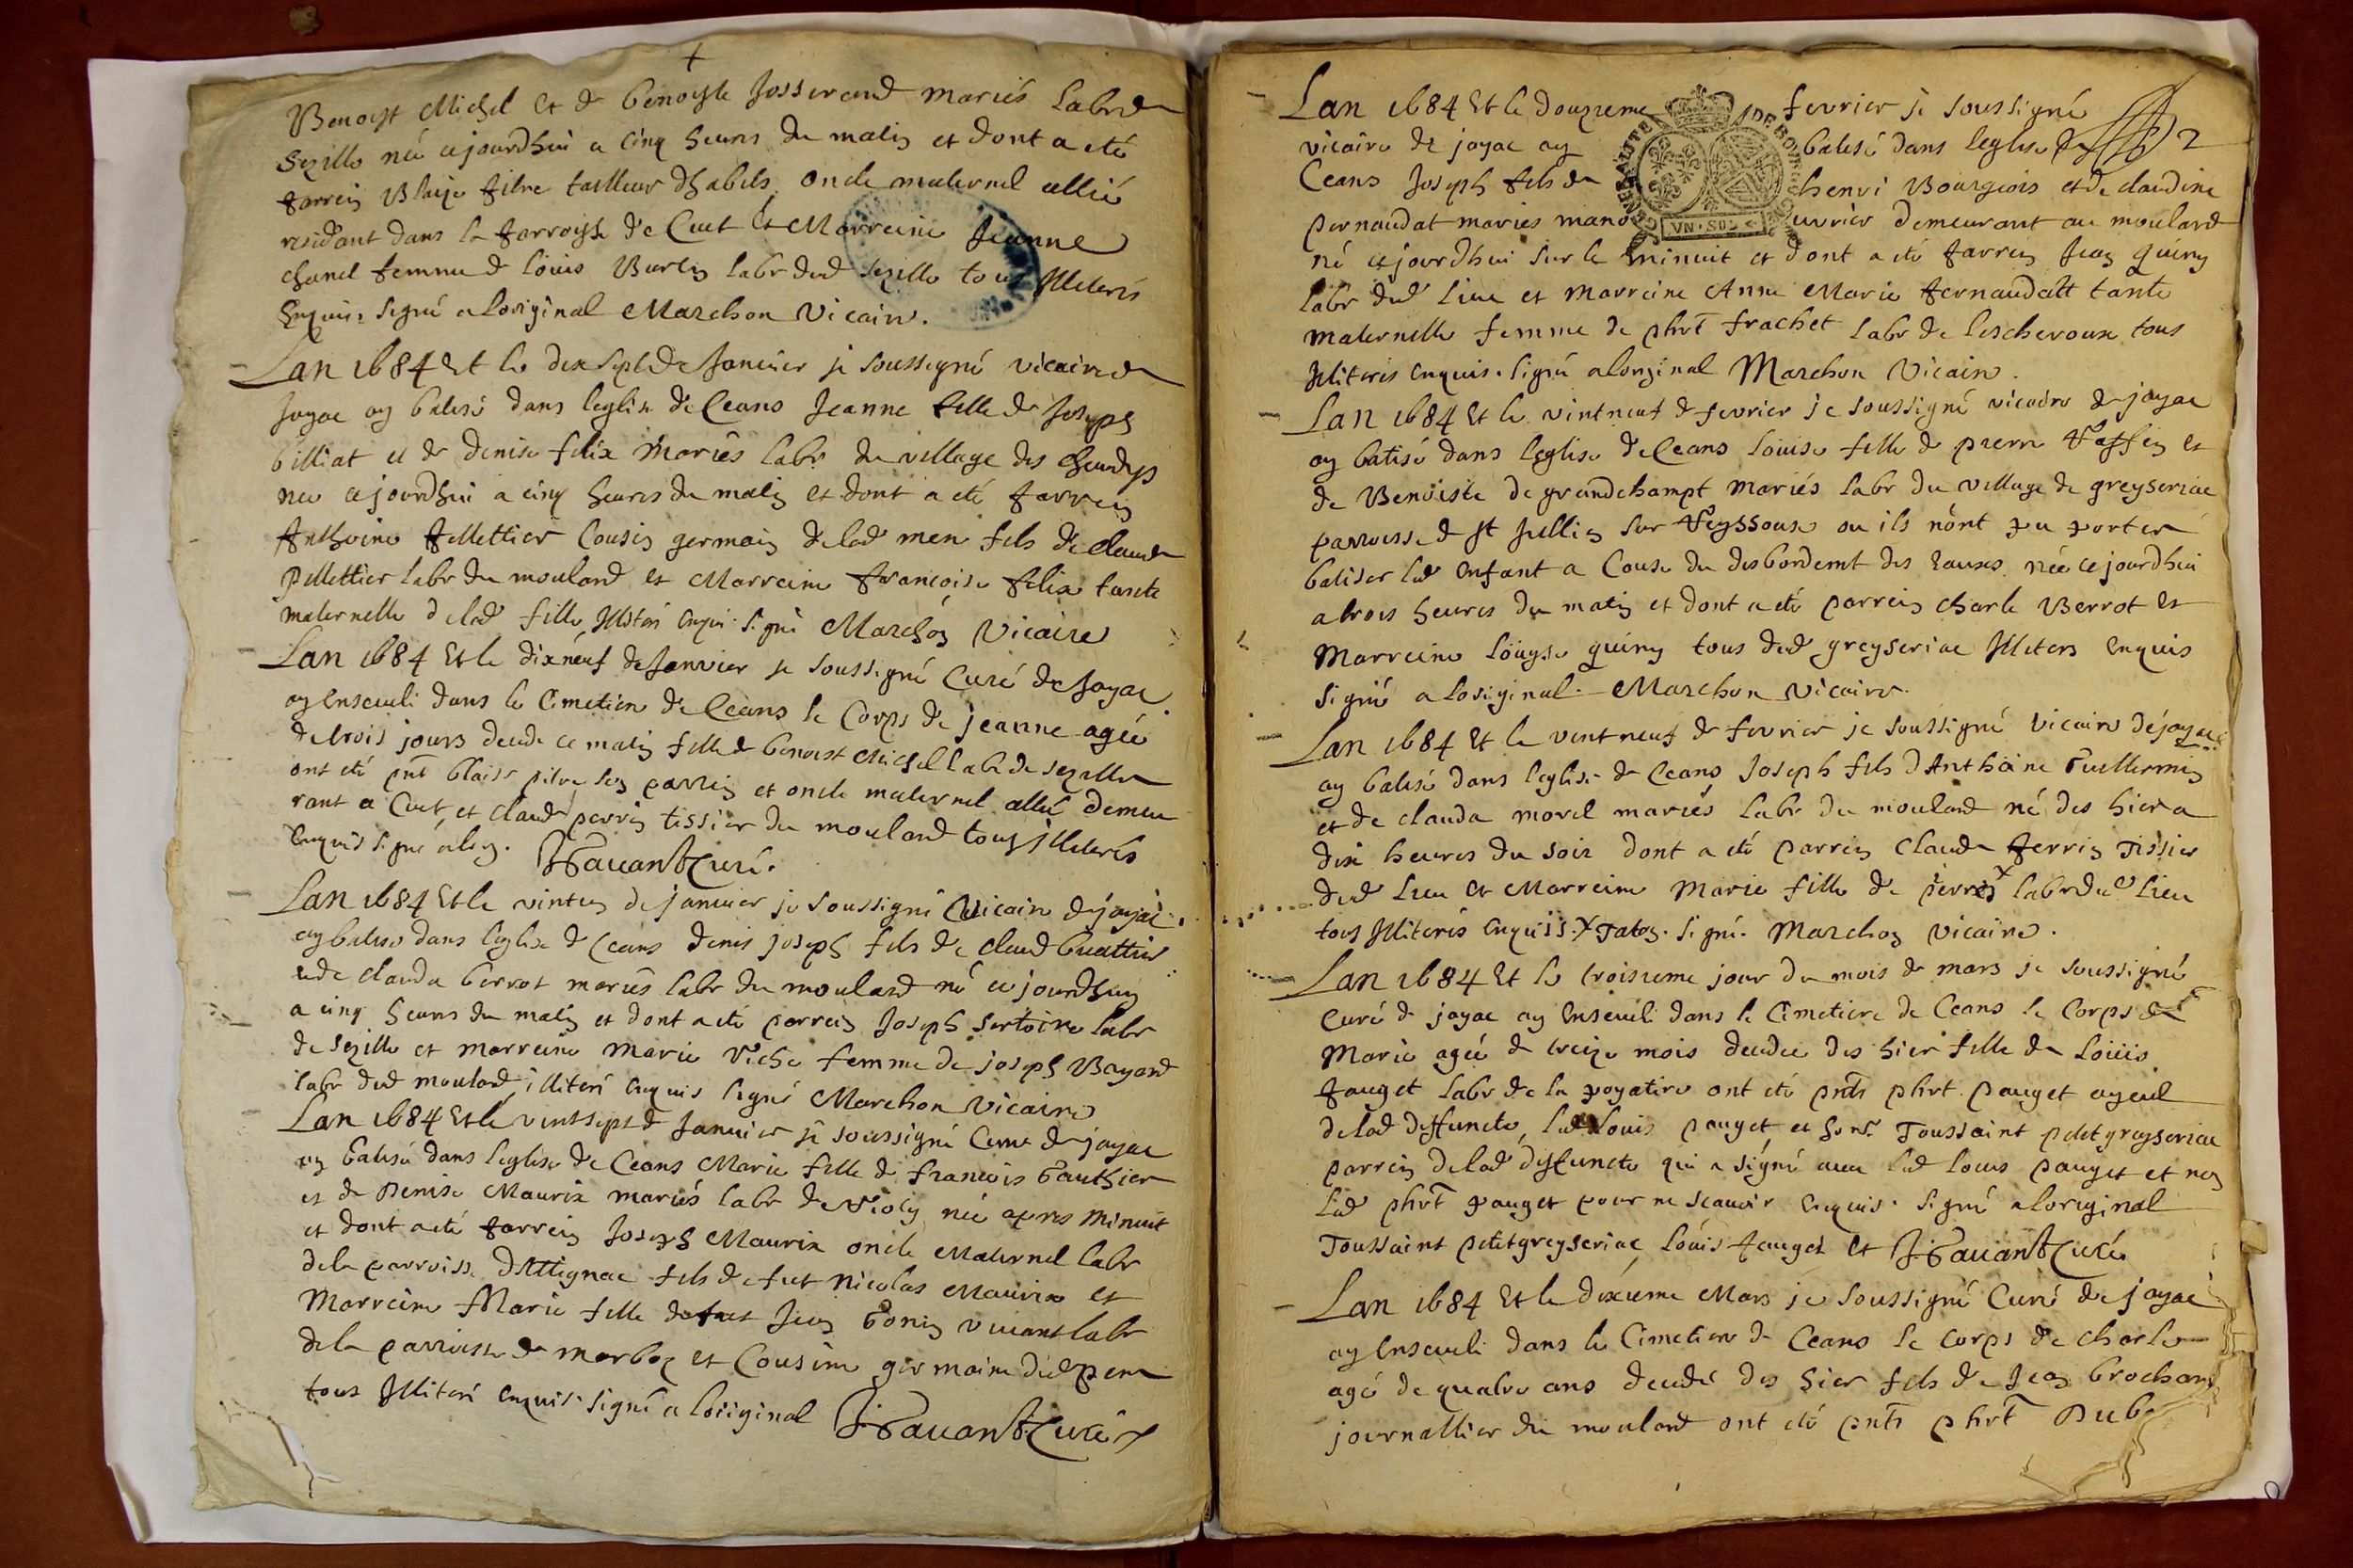 Benoist Michel et de benoiste Josserand mariés labr de
Sezille née cejourdhui a cinq heures du matin et dont a eté
parrein Blaise pitre tailleur dhabits oncle maternel allié
residant dans la parroisse de Cuet et Marreine Jeanne
chanel femme de louis Burtin labr dud sezille tous Illiterés
Enquis signé a loriginal Marchon Vicaire.
Lan 1684 Et le dix sept de Janvier je soussigné vicaire de
Jayac ay batisé dans leglise de Ceans Jeanne fille de Joseph
billiat et de denise felix mariés labr du village des
née cejourdhui a cinq heures du matin et dont a eté parrein
Anthoine pellettier Cousin germain de lad mere fils de claude
pellettier labr du moulard et Marreine francoise felix tante
maternelle de lad fille Illiterés enquis signé Marchon Vicaire
Lan 1684 Et le dixneuf de Janvier je soussigné Curé de Jayac
ay Enseveli dans le Cimetiere de Ceans le Corps de jeanne agée
de trois jours decedée ce matin fille de benoist Michel labr de sezille
ont eté pnt blaise pitre son parrein et oncle maternel allié demeu
rant a Cuet et claude perrin tissier du moulard tous illiterés
enquis signé alorig. Curé.
Lan 1684 Et le vintun de janvier je soussigné Vicaire de jayac
ay batisé dans leglise de Ceans denis joseph fils de claude
et de clauda berrot mariés labr du moulard né cejourdhuy
a cinq heures du matin et dont a eté parrein Joseph sertoire labr
de sezille et marreine marie Viche femme de joseph Bayard
labr dud moulard, illiteré enquis signé Marchon Vicaire
Lan 1684 Et le vintsept de Janvier je soussigné Curé de jayac
ay batisé dans leglise de Ceans Marie fille de francois Gauthier
et de Denise Maurix mariés labr de née apres Minuit
et dont a eté parrein Joseph Maurix oncle Maternel labr
de la parroisse dAttignac fils de fut Nicolas Maurix et
Marreine Marie fille de fut Jean Gonin vivant labr
de la parroisse de marboz et Cousine germaine dud pere
tous Illiteré enquis signé a loriginal Curé
Lan 1684 Et le douzieme fevrier je soussigné
vicaire de jayac ay batisé dans leglise de 2
Ceans Joseph fils de henri Bourgeois et de claudine
pernaudat mariés mano uvrier demeurant au moulard
GENERALITE DE BOURGOGNE
VN SOL
né cejourdhui sur le minuit et dont a eté parrein Jean quiny
labr dud lieu et marreine Anne Marie pernaudatt tante
maternelle femme de phrt frachet labr de lescheroux tous
Illiterés enquis. signé aloriginal Marchon Vicaire.
Lan 1684 Et le vintneuf de fevrier je soussigné vicaire de jayac
ay batisé dans leglise de Ceans louise fille de pierre et
de Benoiste de grandchampt mariés labr du village de greyseriac
parroisse de St Jullin sur Reyssouse ou ils nont pu porter
batiser led Enfant a Cause du desbordemt des Eaux née cejourdhui
a trois heures du matin et dont a eté parrein charle Berrot et
Marreine louyse quiny tous dud greyseriac Illiterés enquis
signé a loriginal. Marchon vicaire.
Lan 1684 Et le vintneuf de fevrier je soussigné vicaire de jayac
ay batisé dans leglise de Ceans Joseph fils dAnthoine Guillermin
et de clauda morel mariés labr du moulard né des hier a
dix heures du soir dont a eté parrein Claude perrin Tissier
dud Lieu et Marreine Marie fille de pierre x labr dud Lieu
tous Illiterés Enquis. x signé. Marchon vicaire.
Lan 1684 Et le troisieme jour du mois de mars je soussigné
Curé de jayac ay Enseveli dans le Cimetiere de Ceans le Corps de
Marie agée de treize mois decedée des hier fille de Louis
pauget labr de la poyatire ont eté pnts phrt pauget ayeul
de lad deffuncte, led Louis pauget et honr. Toussaint petitgreyseriac
parrein de lad deffuncte qui a signé avec led louis pauget et non
led phrt pauget pour ne scavoir enquis. signé a loriginal
Toussaint petitgreyseriac, Louis pauget et Curé
Lan 1684 Et le dixieme Mars je soussigné Curé de jayac
ay Enseveli dans le Cimetiere de Ceans le corps de charle
agé de quatre ans decedé des hier fils de Jean brochand
journallier du moulard ont eté pnts phrt